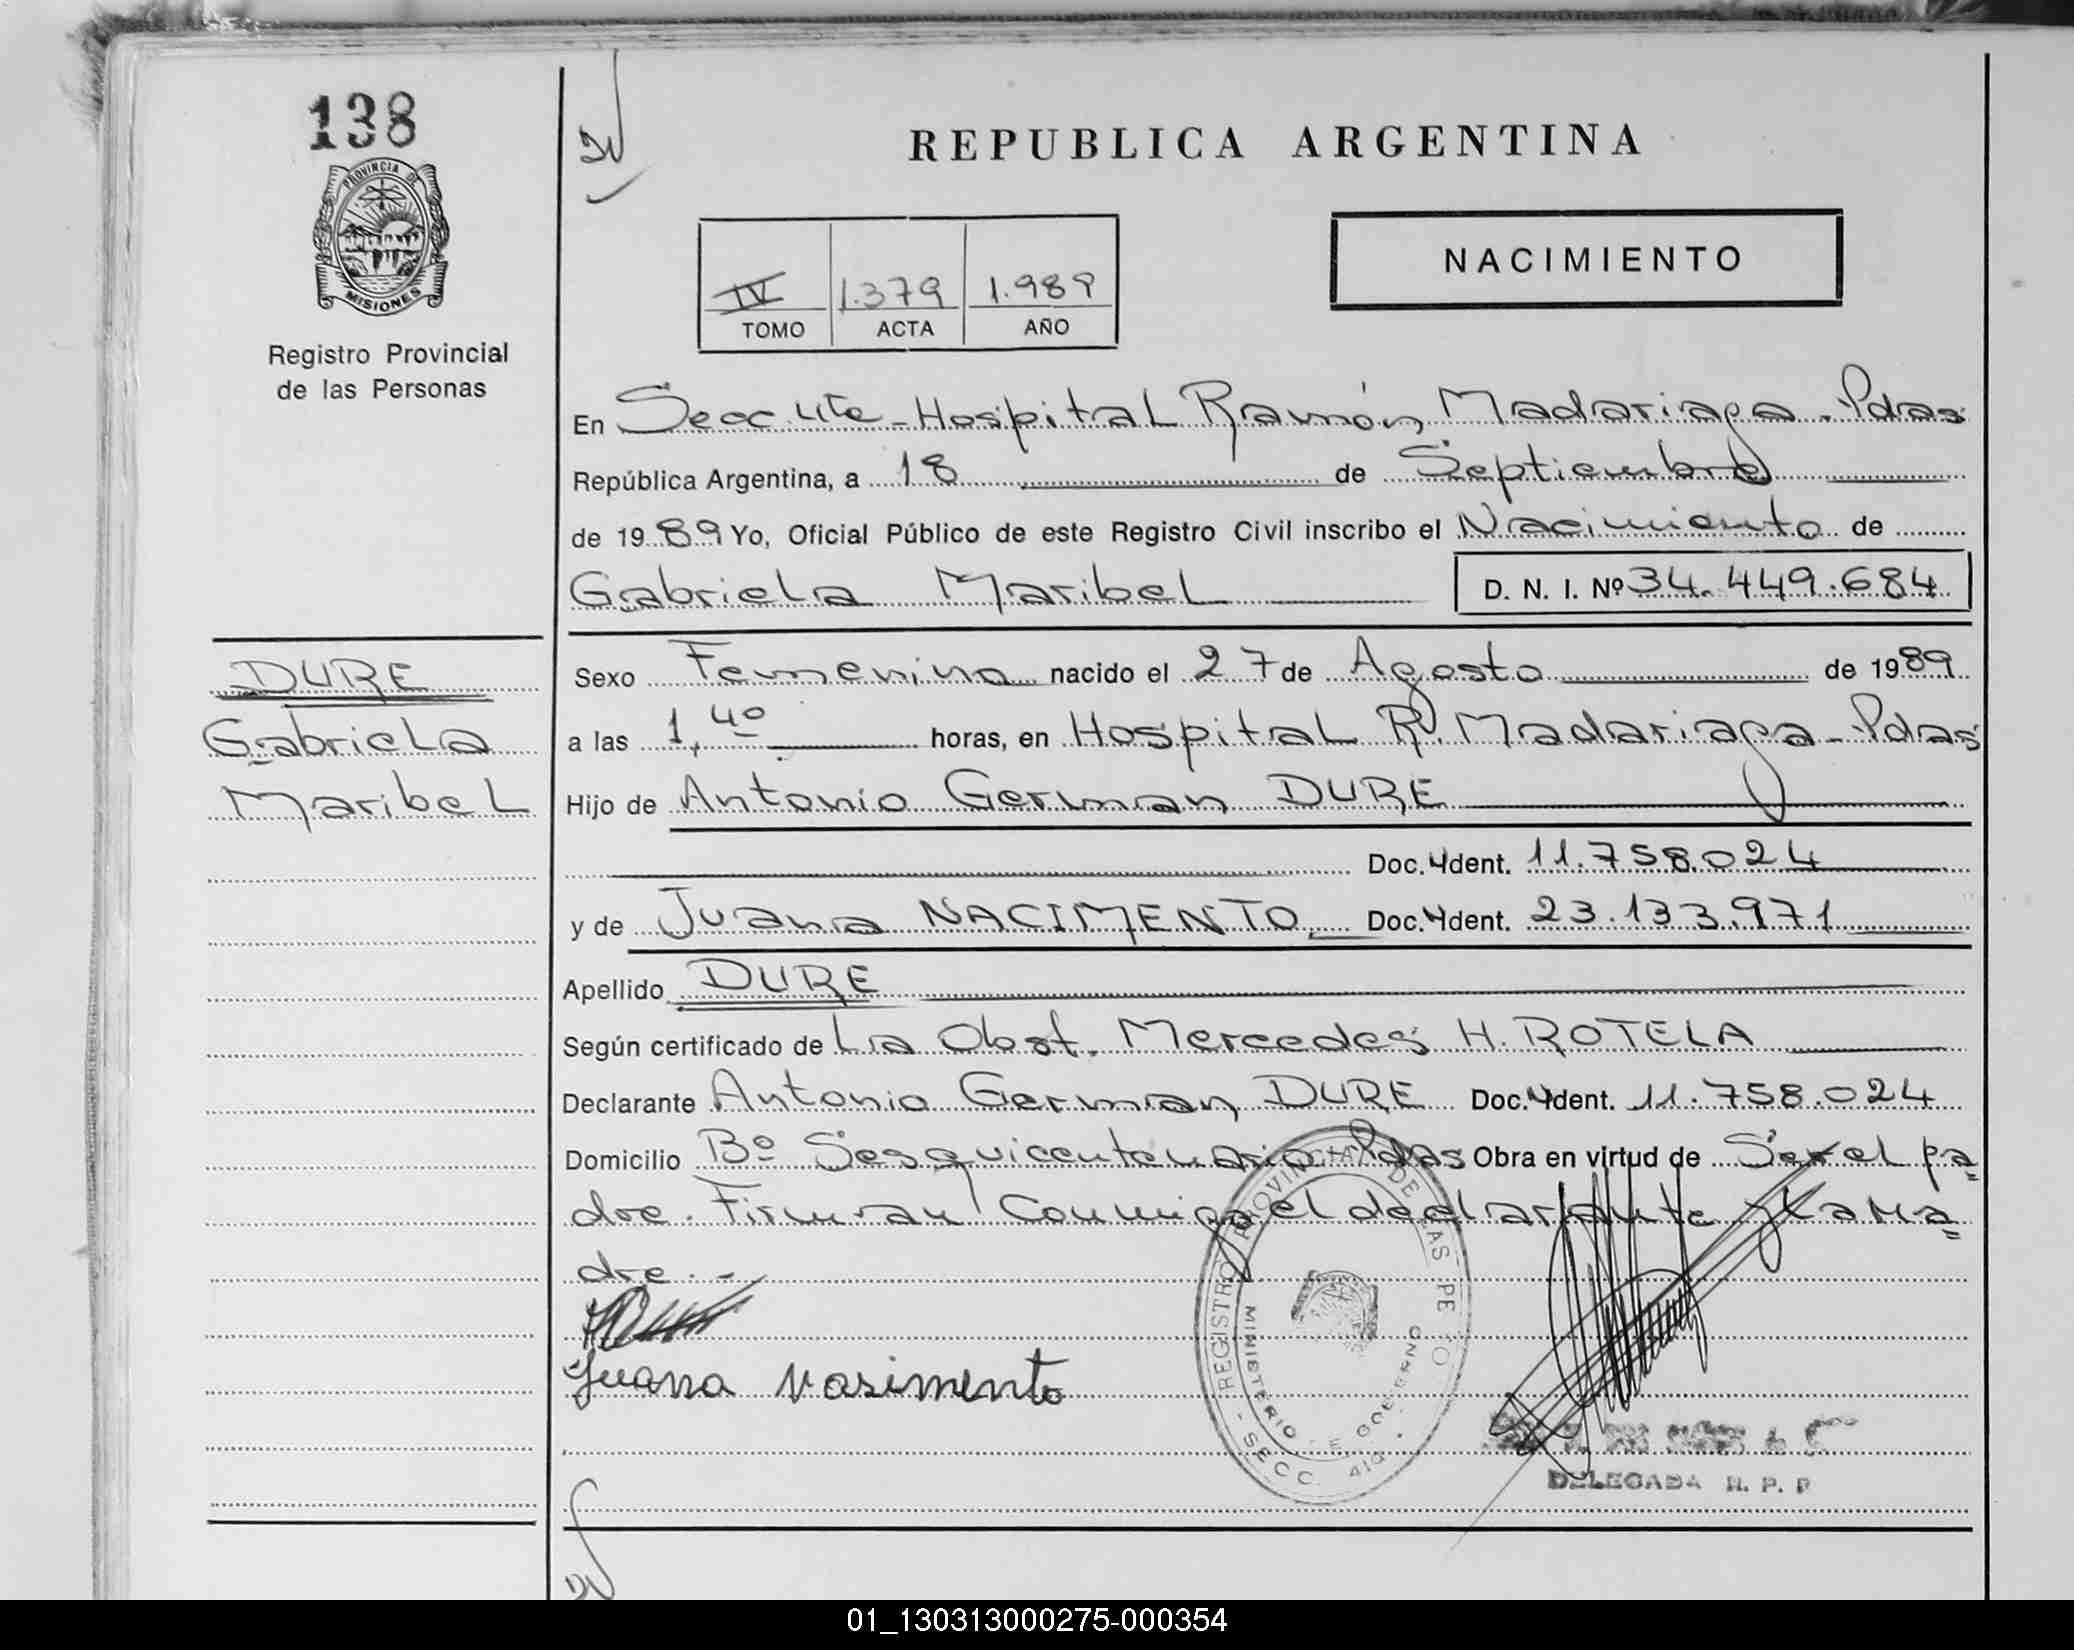 138
PROVINCIA DE
MISIONES
Registro Provincial
de las Personas
DURE
Gabriela
Maribel
REPUBLICA ARGENTINA
NACIMIENTO
IV 1.379 1.989
TOMO ACTA AÑO
En Secc. 41ta - Hospital Ramón Madariaga - Pdas
República Argentina, a 18 de Septiembre
de 1989 Yo, Oficial Público de este Registro Civil inscribo el Nacimiento de
Gabriela Maribel D. N. I. Nº 34.449.684
Sexo Femenino nacido el 27 de Agosto de 1989
a las 1,40 horas, en Hospital R. Madariaga - Pdas
Hijo de Antonio German DURE
Doc. Ydent. 11.758.024
y de Juana NACIMENTO Doc. Ydent. 23.133.971
Apellido DURE
Según certificado de La Obst. Mercedes H. ROTELA
Declarante Antonio German DURE Doc. Ydent. 11.758.024
Domicilio Bº Sesquicentenario - Pdas Obra en virtud de Ser el pa=
dre. Firman Conmigo el declarante y la ma=
dre.-
Juana nasimento
REGISTRO PROVINCIAL DE LAS PE
MINISTERIO DE GOBIERNO
SECC. 41a.
DELEGADA R. P. P
01_130313000275-000354